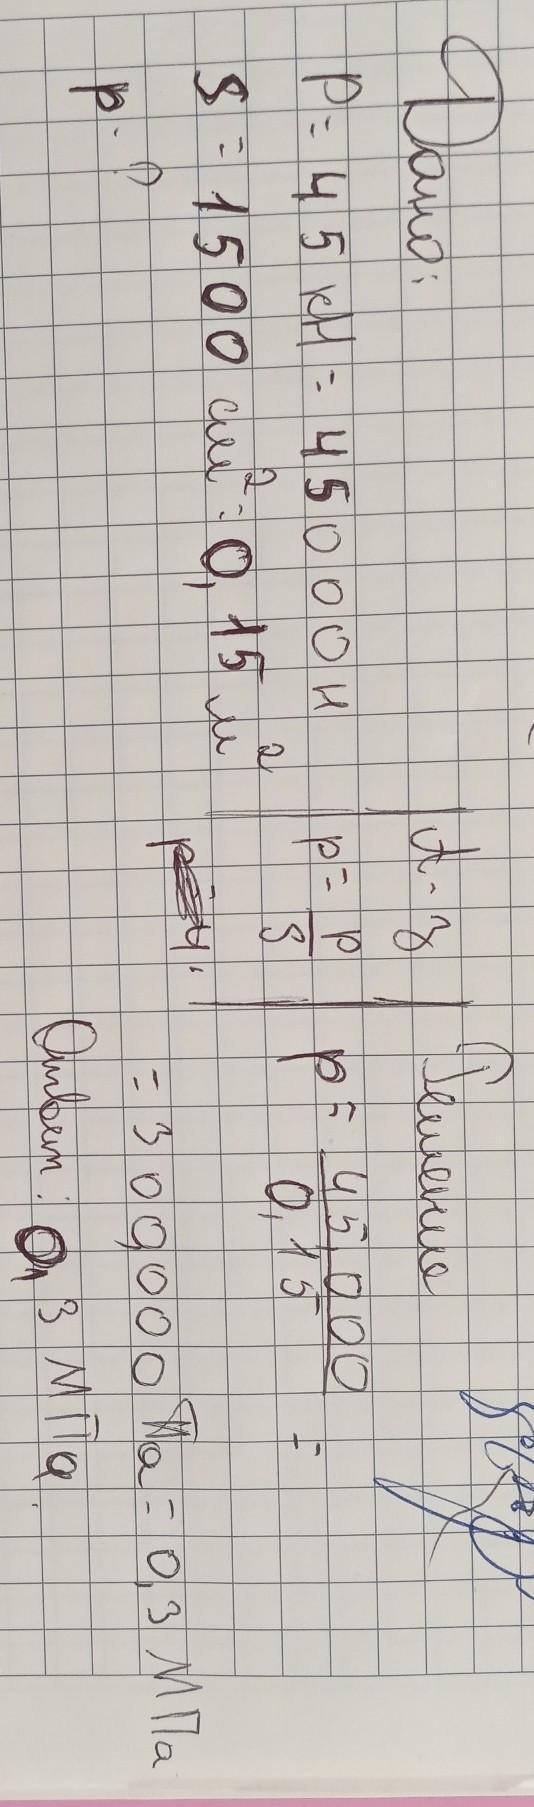 Дано:
р = 45 кН = 45000 н
S = 1500 см² = 0,15 м²
р - ?
А-з
р = р/S
Решение
р = 45,000/0,15 =
= 300,000 Па = 0,3 МПа
Ответ: 0,3 МПа.